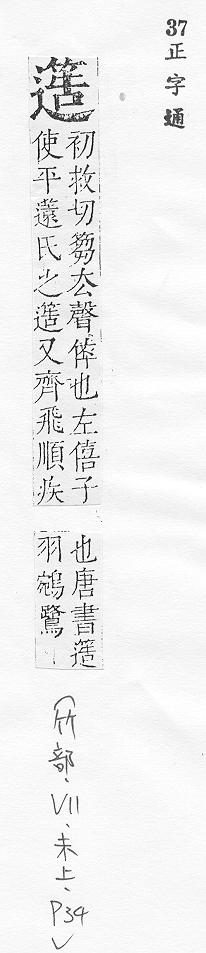 37正字通
簉
初救切篘去聲倅也左僖子
使平薳氏之簉又齊飛順疾
也唐書簉
羽鵷鷺
(竹部、VII、未上、P34)